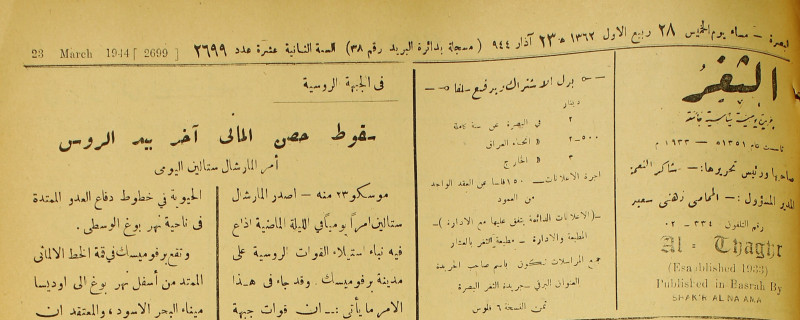 البصرة – مساء يوم الخميس ٢٨ ربيع الاول ١٣٦٢ هـ ٢٣ آذار ٩٤٤ ( مسجلة بدائرة البريد رقم ٣٨) السنة الثانية عشرة عدد ٢٦٩٩ 23 March 1944 [ 2699 ]
الثغر
جريدة يومية سياسية جامعة
تأسست عام ١٣٥١ هـ – ١٩٣٣ م
صاحبها ورئيس تحريرها: – شاكر النعمة
المدير المسؤول: – المحامي زهني سعيد
رقم التلفون ٣٣٤ – ٠٢
Al - Thaghr
(Established 1933)
Published in Basrah By
SHAKIR AL NAAMA
بدل الاشتراك ويدفع سلفا
دينار
٢ في البصرة عن سنة كاملة
٢-٥٠٠ » انحاء العراق
٣ » الخارج
اجرة الاعلانات – ١٥٠ فلسا عن العقد الواحد
من العمود
–( الاعلانات الدائمة يتفق عليها مع الادارة )–
المطبعة والادارة – مطبعة الثغر بالعشار
جميع المراسلات تكون باسم صاحب الجريدة
العنوان البرقي – جريدة الثغر البصرة
ثمن النسخة ٦ فلوس
فى الجبهة الروسية
سقوط حصن المانى آخر بيد الروس
أمر المارشال ستالين اليومى
موسكو ٢٣ منه – اصدر المارشال
ستالين امرا يوميا في الليلة الماضية اذاع
فيه نباء استيلاء القوات الروسية على
مدينة برفوميسك . وقد جاء في هذا
الامر ما يأتى :– ان قوات جبهة
الحيوية في خطوط دفاع العدو الممتدة
فى ناحية نهر بوغ الوسطى .
وتقع برفوميسك في قمة الخط الالمانى
الممتد من أسفل نهر بوغ الى اوديسا
ميناء البحر الاسود ، والمعتقد ان